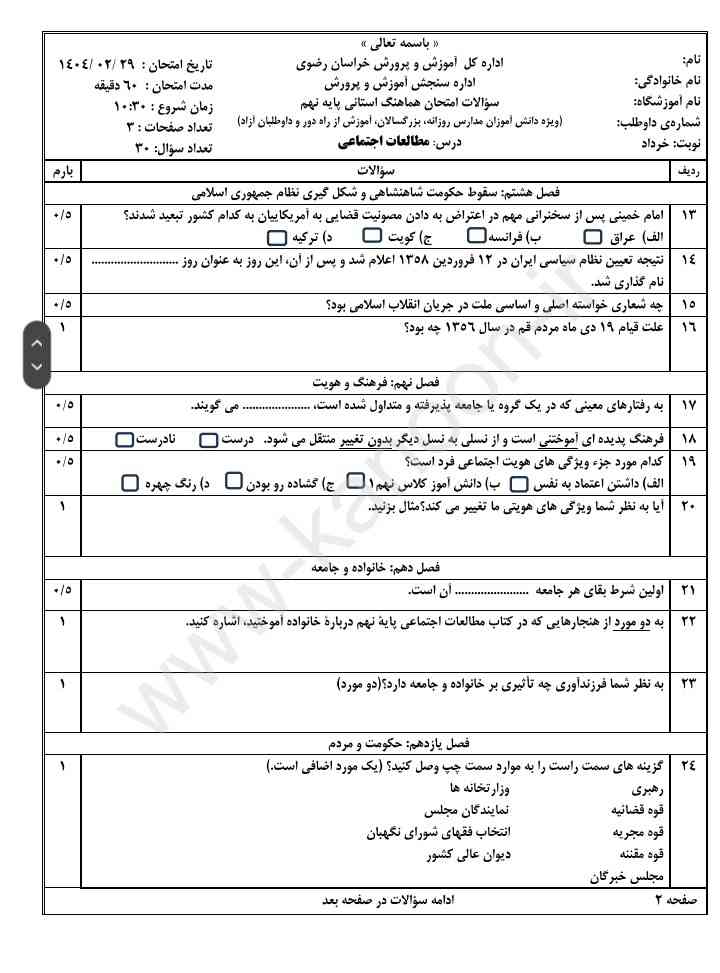 « باسمه تعالی »
نام:
اداره کل آموزش و پرورش خراسان رضوی
تاریخ امتحان : ۲۹ /۰۲ /۱۴۰۴
نام خانوادگی:
اداره سنجش آموزش و پرورش
مدت امتحان : ۶۰ دقیقه
نام آموزشگاه:
سؤالات امتحان هماهنگ استانی پایه نهم
زمان شروع : ۱۰:۳۰
شماره‌ی داوطلب:
(ویژه دانش آموزان مدارس روزانه، بزرگسالان، آموزش از راه دور و داوطلبان آزاد)
تعداد صفحات : ۳
نوبت: خرداد
درس: مطالعات اجتماعی
تعداد سؤال: ۳۰
ردیف سؤالات بارم
فصل هشتم: سقوط حکومت شاهنشاهی و شکل گیری نظام جمهوری اسلامی
۱۳ امام خمینی پس از سخنرانی مهم در اعتراض به دادن مصونیت قضایی به آمریکاییان به کدام کشور تبعید شدند؟ ۰/۵
الف) عراق ب) فرانسه ج) کویت د) ترکیه
۱۴ نتیجه تعیین نظام سیاسی ایران در ۱۲ فروردین ۱۳۵۸ اعلام شد و پس از آن، این روز به عنوان روز ........................... ۰/۵
نام گذاری شد.
۱۵ چه شعاری خواسته اصلی و اساسی ملت در جریان انقلاب اسلامی بود؟ ۰/۵
۱۶ علت قیام ۱۹ دی ماه مردم قم در سال ۱۳۵۶ چه بود؟ ۱
فصل نهم: فرهنگ و هویت
۱۷ به رفتارهای معینی که در یک گروه یا جامعه پذیرفته و متداول شده است، ..................... می گویند. ۰/۵
۱۸ فرهنگ پدیده ای آموختنی است و از نسلی به نسل دیگر بدون تغییر منتقل می شود. درست نادرست ۰/۵
۱۹ کدام مورد جزء ویژگی های هویت اجتماعی فرد است؟ ۰/۵
الف) داشتن اعتماد به نفس ب) دانش آموز کلاس نهم۱ ج) گشاده رو بودن د) رنگ چهره
۲۰ آیا به نظر شما ویژگی های هویتی ما تغییر می کند؟مثال بزنید. ۱
فصل دهم: خانواده و جامعه
۲۱ اولین شرط بقای هر جامعه ....................... آن است. ۰/۵
۲۲ به دو مورد از هنجارهایی که در کتاب مطالعات اجتماعی پایۀ نهم دربارۀ خانواده آموختید، اشاره کنید. ۱
۲۳ به نظر شما فرزندآوری چه تأثیری بر خانواده و جامعه دارد؟(دو مورد) ۱
فصل یازدهم: حکومت و مردم
۲۴ گزینه های سمت راست را به موارد سمت چپ وصل کنید؟ (یک مورد اضافی است.) ۱
رهبری وزارتخانه ها
قوه قضائیه نمایندگان مجلس
قوه مجریه انتخاب فقهای شورای نگهبان
قوه مقننه دیوان عالی کشور
مجلس خبرگان
صفحه ۲ ادامه سؤالات در صفحه بعد
www-kanoon.ir